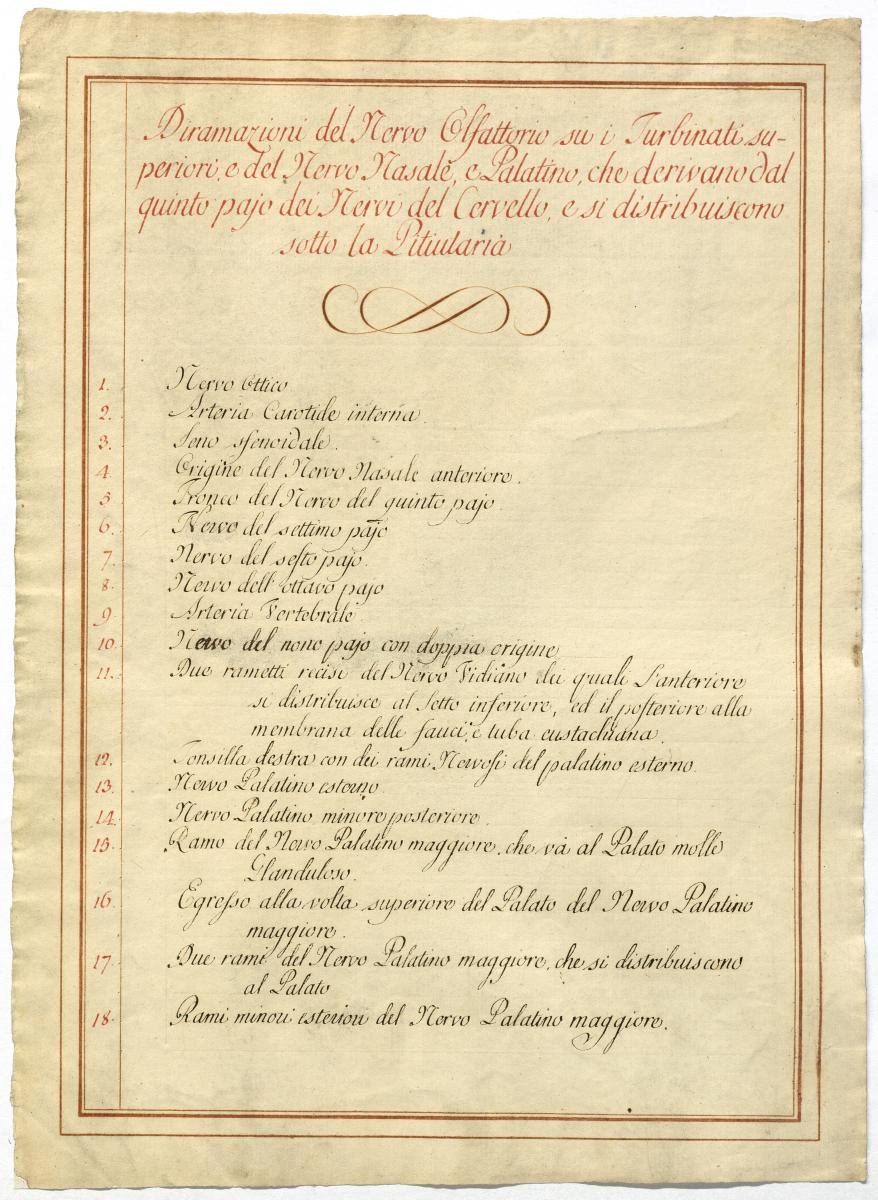 Diramazioni del Nervo Olfattorio su i Turbinati su-
periori, e del Nervo Nasale, e Palatino, che derivano dal
quinto pajo dei Nervi del Cervello, e si distribuiscono
sotto la Pitiutaria
1. Nervo Ottico
2. Arteria Carotide interna.
3. Seno sfenoidale.
4. Origine del Nervo Nasale anteriore.
5 Tronco del Nervo del quinto pajo.
6. Nervo del settimo pajo
7. Nervo del sesto pajo.
8. Nervo dell'ottavo pajo
9. Arteria Vertebrale.
10. Nervo del nono pajo con doppia origine
11. Due rametti recisi del Nervo Vidiano dei quali l'anteriore
si distribuisce al Setto inferiore, ed il posteriore alla
membrana delle fauci, e tuba eustachiana.
12. Tonsilla destra con dei rami Nervosi del palatino esterno.
13. Nervo Palatino esterno.
14. Nervo Palatino minore posteriore.
15. Ramo del Nervo Palatino maggiore, che và al Palato molle
Glanduloso.
16. Egresso alla volta superiore del Palato del Nervo Palatino
maggiore.
17. Due rami del Nervo Palatino maggiore, che si distribuiscono
al Palato
18. Rami minori esteriori del Nervo Palatino maggiore.